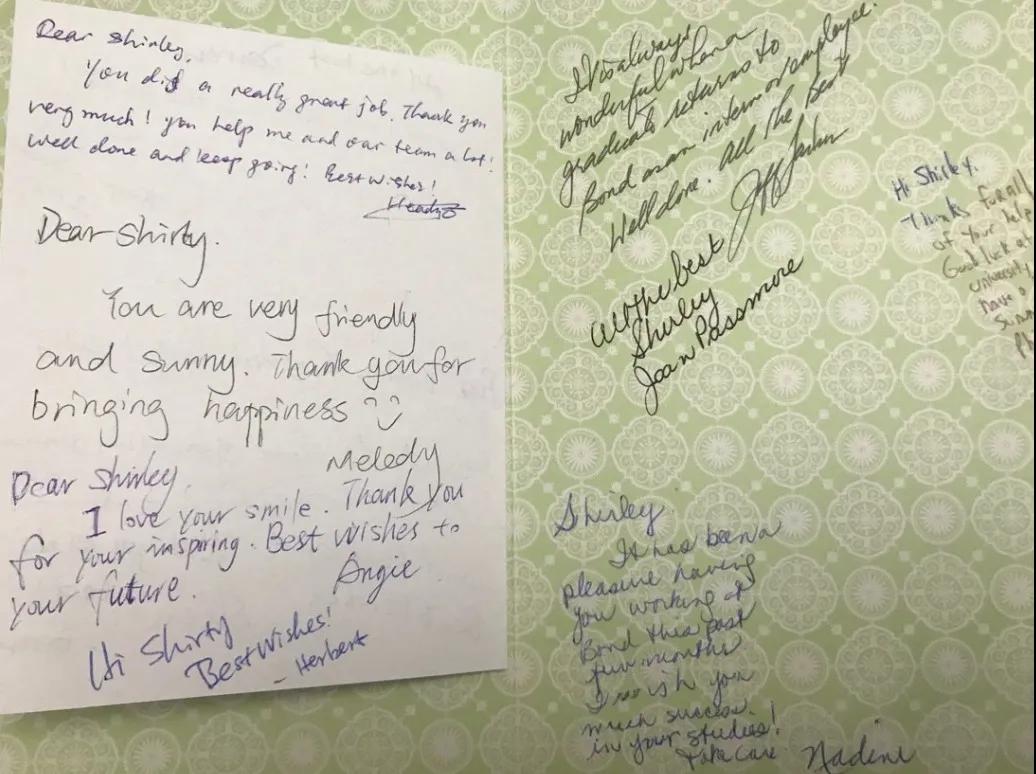 Dear Shirley,
You did a really great job. Thank you
very much! you help me and our team a lot!
Well done and keep going! Best wishes!
Dear Shirty.
You are very friendly
and sunny. Thank you for
bringing happiness
Melody
Dear Shirley.
I love your smile. Thank you
for your inspiring. Best wishes to
your future.
Angie
Hi Shirty
Best wishes!
- Herbert
It is always
wonderful when a
graduate returns to
Bond as an intern or employee.
Well done. All the Best
All the best
Shirley
Joan Passmore
Hi Shirley.
Thanks for all
of your help
Good luck at
university
have a
Shirley
It has been a
pleasure having
you working at
Bond this past
few months
I wish you
much success
in your studies!
Take Care
Nadine